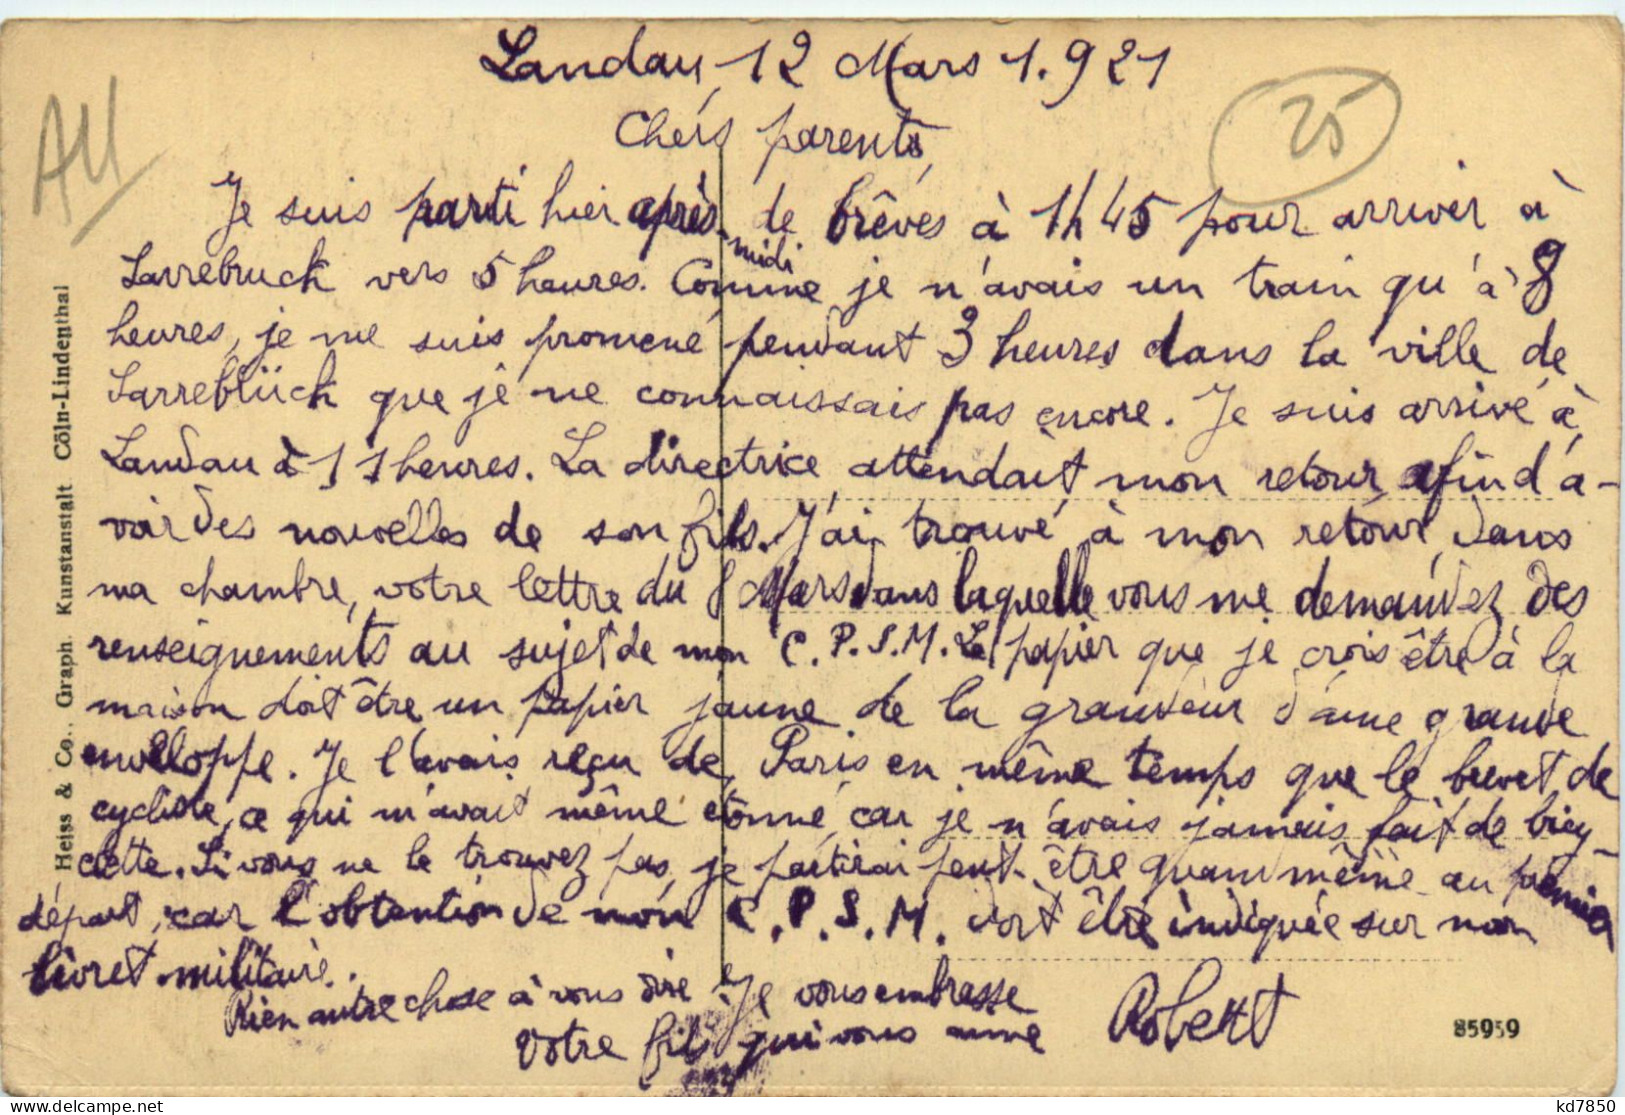 Landau, 12 Mars 1.921
AU
25
Chers parents,
Je suis parti hier après-midi de brêves à 1h45 pour arriver à
Sarrebruck vers 5 heures. Comme je n'avais un train qu'à 8
heures, je me suis promené pendant 3 heures dans la ville de
Sarrebrück que je ne connaissais pas encore. Je suis arrivé à
Landau à 11 heures. La directrice attendait mon retour, afin d'a-
voir des nouvelles de son fils. J'ai trouvé à mon retour, dans
ma chambre, votre lettre du 8 Mars dans laquelle vous me demandez des
renseignements au sujet de mon C.P.S.M. Le papier que je crois être à la
maison doit être un papier jaune de la grandeur d'une grande
envelloppe. Je l'avais reçu de Paris en même temps que le brevet de
cycliste, ce qui m'avait même étonné, car je n'avais jamais fait de bicy-
clette. Si vous ne le trouvez pas, je partirai peut-être quand même au premier
départ, car l'obtention de mon C.P.S.M. doit être indiquée sur mon
livret militaire.
Rien autre chose à vous dire Je vous embrasse
Votre fils qui vous aime Robert
Heiss & Co., Graph. Kunstanstalt Cöln-Lindenthal
85959
kd7850